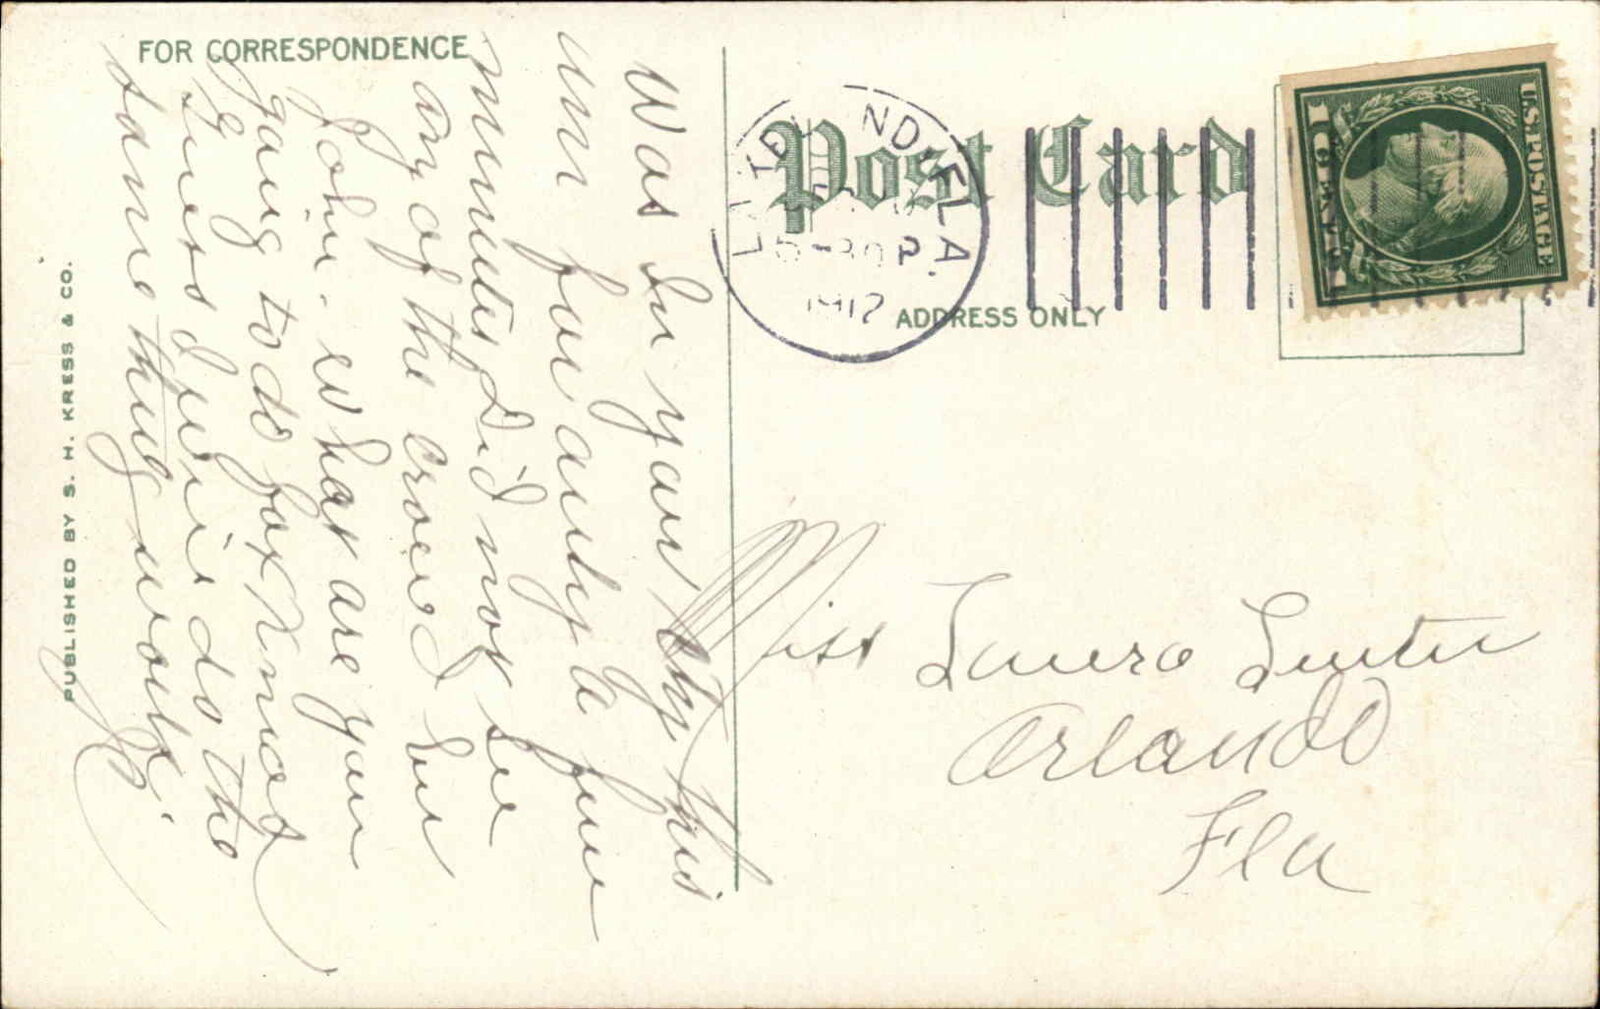 FOR CORRESPONDENCE
Post Card
ADDRESS ONLY
PUBLISHED BY S. H. KRESS & CO.
ND, FLA
5-30 P
1912
U.S. POSTAGE
1 CENT 1
Was in your city this
for only a few
minutes Did not see
any of the crowd but
John. What are you
going to do for Xmas
Guess I will do the
same thing work.
Miss Laura
Orlando
Fla